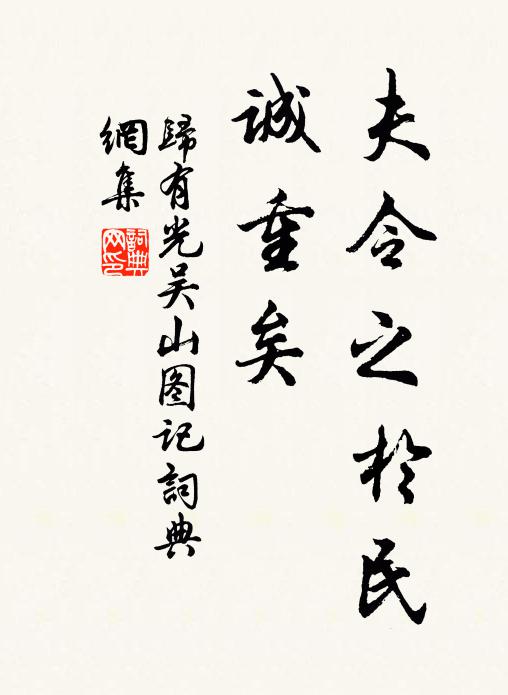 夫令之於民
誠重矣
歸有光吴山图记詞典
網集
詞典網印